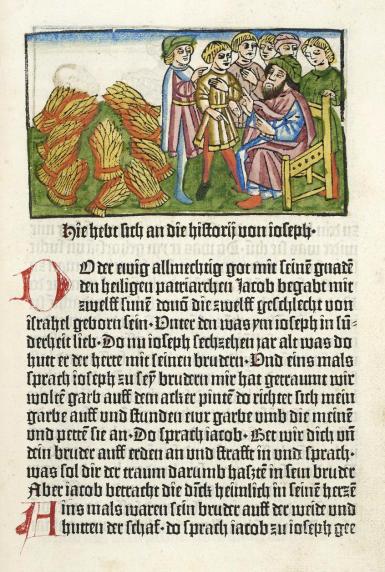 Hie hebt sich an die historij von ioseph·
DO der ewig allmechtig got mit seinē gnadē
den heiligen patriarchen Jacob begabt mit
zwelff sunē donō die zwelff geschlecht von
israhel geborn sein·Unter den was yn ioseph in sū-
decheit lieb·Do nu ioseph sechzehen jar alt was do
hutt er der herte mit seinen brudern·Und eins mals
sprach ioseph zu sey̅ brudern mir hat getraumt wir
wolten garb auff dem acker pintē do richtet sich mein
garbe auff vnd stunden ewr garbe vmb die meinē
vnd pettē sie an·Do sprach iacob·Get wir dich vn̄
dein bruder auff erden an vnd strafft in vnd sprach·
was sol dir der traum darumb hasztē in sein bruder
Aber iacob betracht die dīck heimlich in seinē herzē
Ains mals waren sein bruder auff der weide vnd
hutten der schaf·do sprach iacob zu ioseph gee